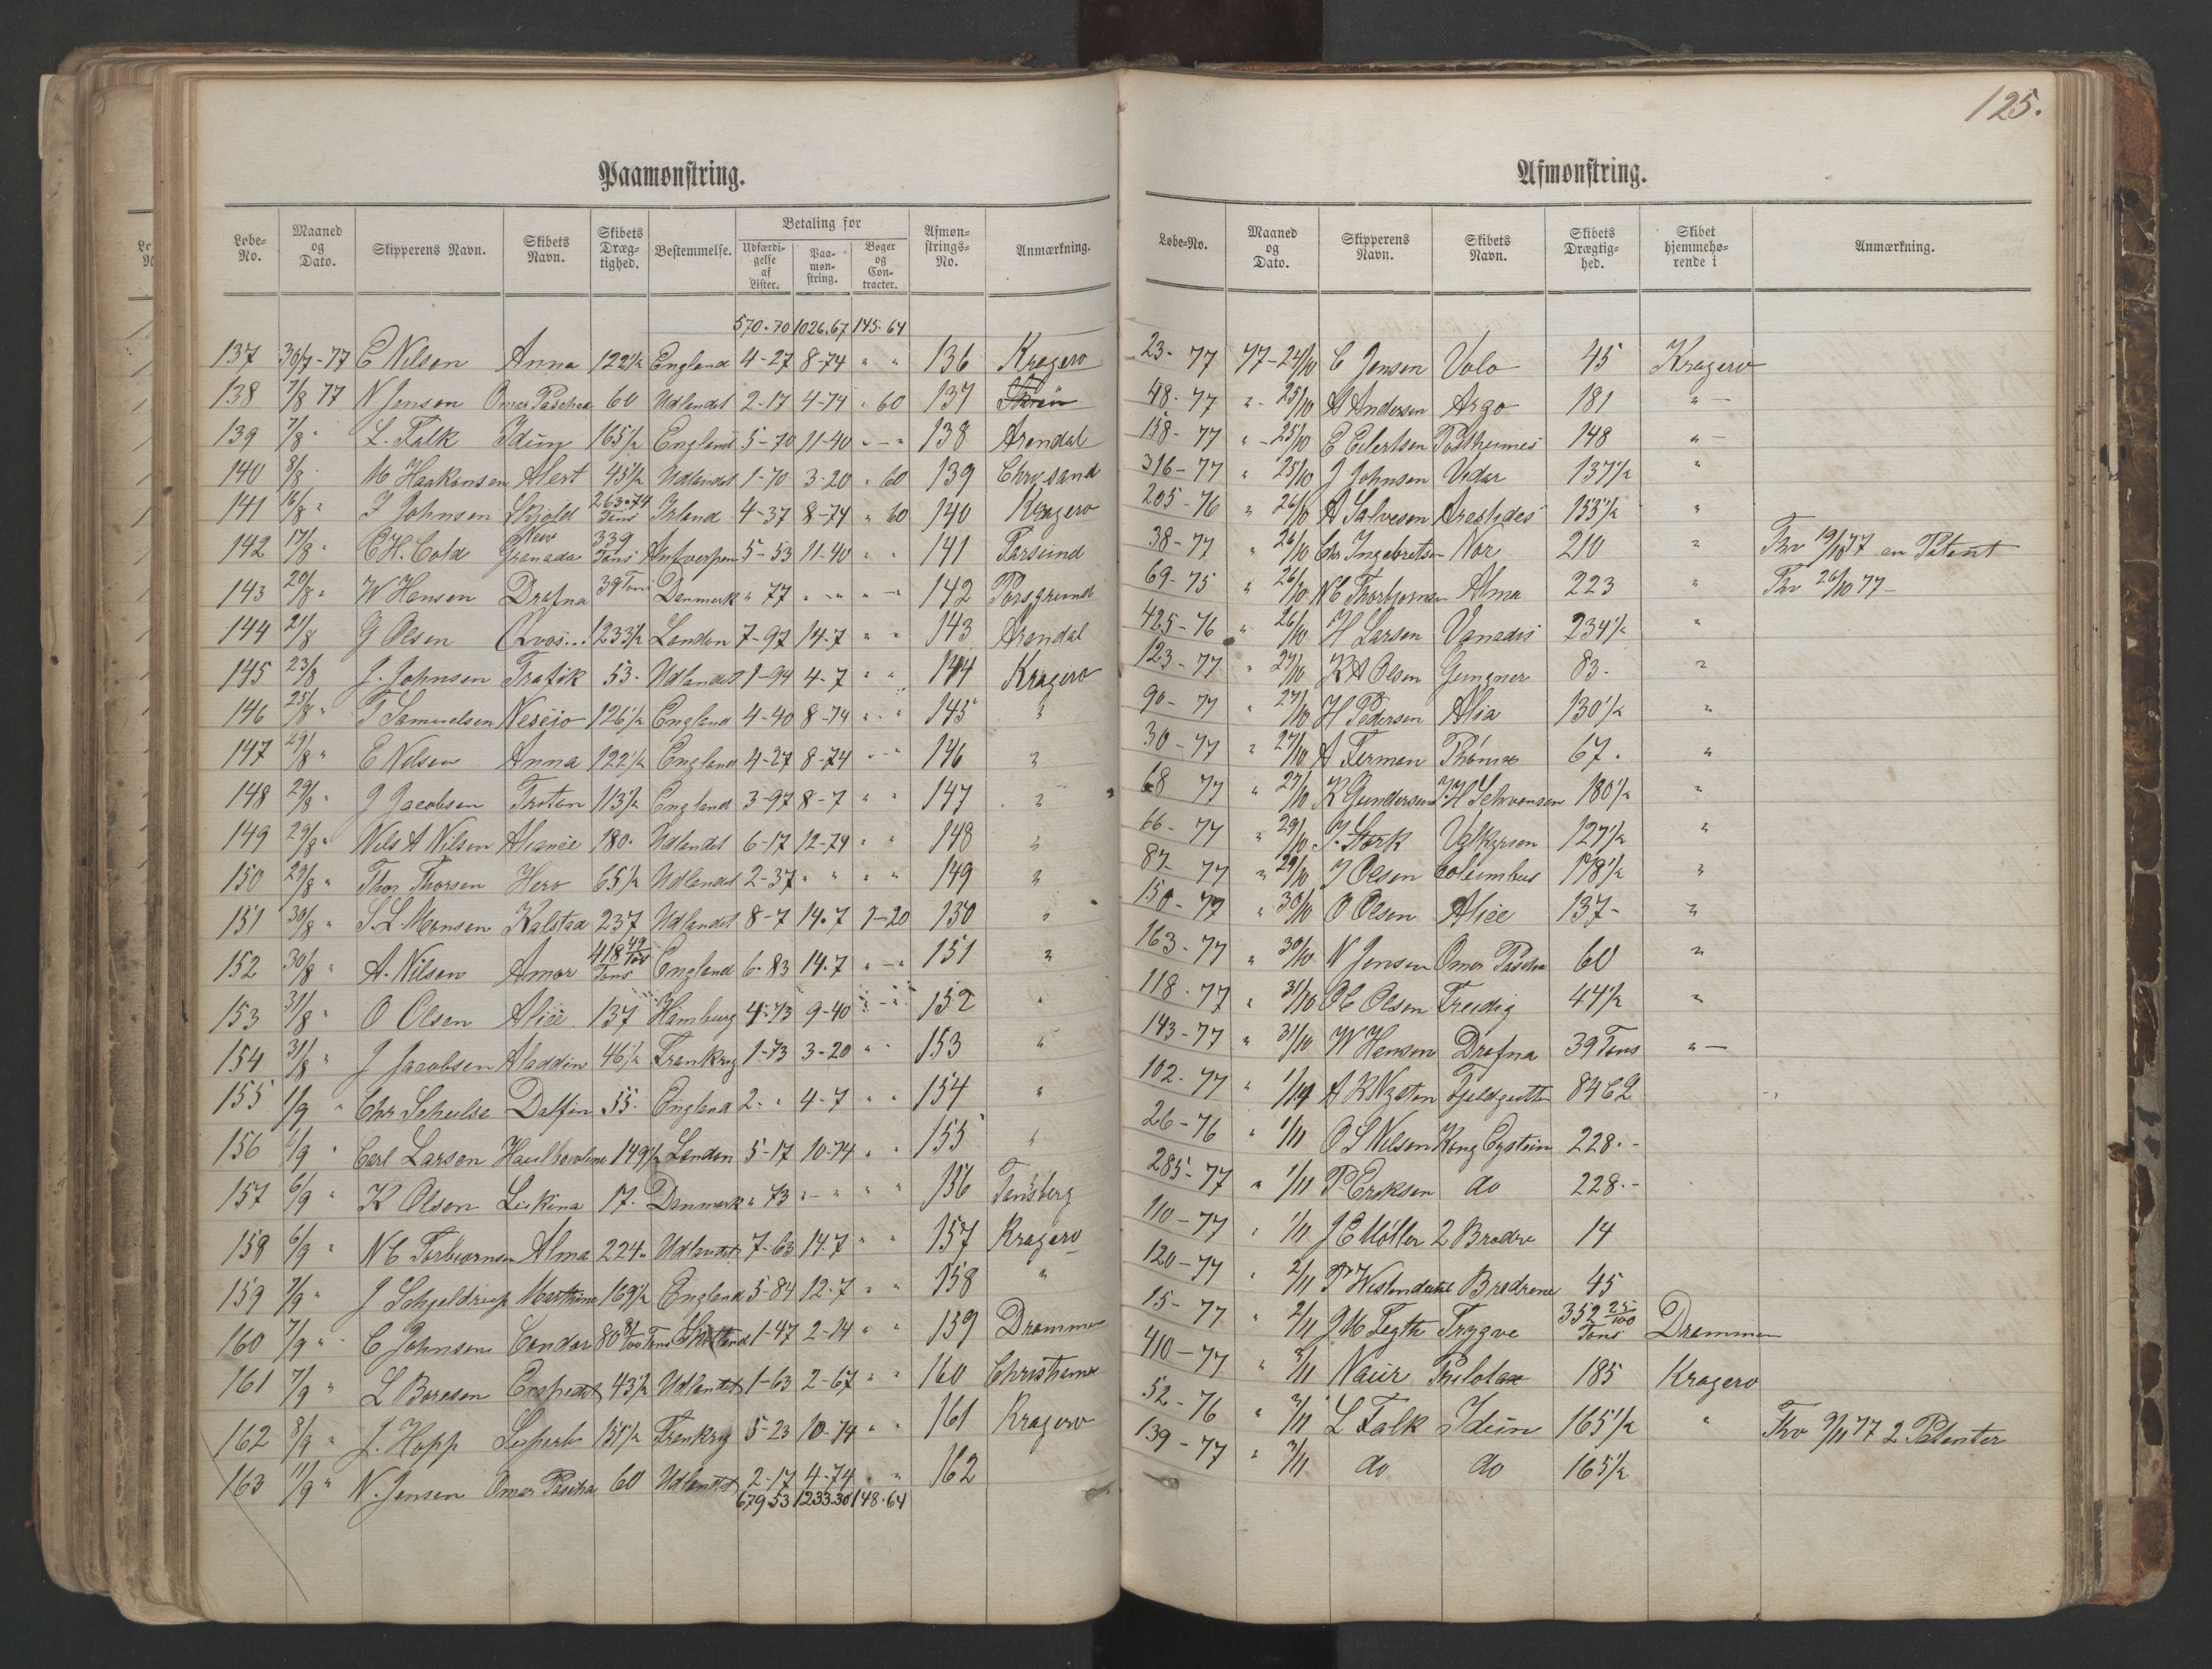 125.
Paamønstring.
Løbe-No. Maaned og Dato. Skipperens Navn. Skibets Navn. Skibets Drægtighed. Bestemmelse. Betaling for Udfærdigelse af Lister. Paamønstring. Bøger og Contracter. Afmønstrings-No. Anmærkning.
570.70 1026.67 145.64
137 30/7-77 E Nilsen Anna 122½ England 4-27 8-74 " " 136 Kragerø
138 7/8 77 N Jensen Omer Pascha 60 Udlandet 2-17 4-74 " 60 137
139 7/8 " L. Falk Idun 165½ England 5-70 11-40 " - " 138 Arendal
140 8/8 M Haakonsen Alert 45½ Udlandet 1-70 3-20 " 60 139 Chrs.sand
141 16/8 " J Johnsen Skjold 263.74 Tons Irland 4-37 8-74 " 60 140 Kragerø
142 17/8 " C H. Cold New Granada 339 Tons Antwerpen 5-53 11-40 " " 141 Farsund
143 20/8 " W Hansen Drafna 39 Tons Danmark " 77 " - " " - 142 Porsgrund
144 21/8 G Olsen 233½ London 7-97 14-7 " " 143 Arendal
145 23/8 J. Johnsen Trafik 53. Udlandet 1-94 4-7 " " 144 Kragerø
146 25/8 " T Samuelsen 126½ England 4-40 8-74 " - " 145 "
147 29/8 " E Nilsen Anna 122½ England 4-27 8-74 " - " 146 "
148 29/8 " J Jacobsen Triton 113½ England 3-97 8-7 " " 147 "
149 29/8 " Nils A Nilsen 180. Udlandet 6-17 12-74 " " 148 "
150 29/8 " Thor Thorsen Hero 65½ Udlandet 2-37 " " " " 149 "
151 30/8 " S. L. Monsen Kalstad 237 Udlandet 8-7 14.7 1-20 150 "
152 30/8 " A. Nilsen Amor 418 49/100 Tons England 6-83 14.7 " - " 151 "
153 31/8 " O Olsen Alice 137 Hamburg 4-73 9-40 " - " 152 "
154 31/8 " J Jacobsen Aladdin 46½ Frankrig 1-73 3-20 " " 153 "
155 1/9 " Chr Schulse Delfin 55. England 2- " 4-7 " " 154 "
156 /9 " Carl Larsen 149½ London 5-17 10-74 " " 155 "
157 6/9 " K Olsen 17. Danmark " 73 " - " " " 156 Tønsberg
158 6/9 " N C Torbiørnsen Alma 224 " Udlandet 7-63 14.7 " " 157 Kragerø
159 7/9 " J Schjeldrup 169½ England 5-84 12-7 " " 158 "
160 7/9 " C Johnsen Condor 80 81/100 Tons Skotland 1-47 2-14 " " 159 Drammen
161 7/9 " L Boresen 43½ Udlandet 1-63 2-67 " " 160 Christiania
162 8/9 " J. Hopp 151½ Frankrig 5-23 10-74 " " 161 Kragerø
163 11/9 " N. Jensen Omer Pascha 60 Udlandet 2-17 4-74 " " 162
679 53 1233.30 148.64
Afmønstring.
Løbe-No. Maaned og Dato. Skipperens Navn. Skibets Navn. Skibets Drægtighed. Skibet hjemmehørende i Anmærkning.
23- 77 77-24/10 C Jensen Volo 45 Kragerø
48- 77 " - 25/10 A Andersen Argo 181 " -
158- 77 " - 25/10 E Eilertsen 148 " -
316- 77 " 25/10 J Johnsen Vidar 137½ "
205- 76 " 26/10 A Salvesen Arestides 155½ "
38- 77 " 26/10 Chr Ingebretsen Nor 210 " Thv 19/10 77 en Patent
69- 75 " 26/10 N C Thorbjørnsen Alma 223 " Thv 26/10 77-
425- 76 " 26/10 H Larsen Vanadis 234½ "
123- 77 " 27/10 K A Olsen Gungner 83. "
90- 77 " 27/10 H Pedersen 130½ "
30- 77 " 27/10 A Ferman 67. "
68 77 " 27/10 K Gundersen 180½ "
66- 77 " 29/10 J. Stork Valkyrien 127½ "
87- 77 " 29/10 J Olsen Columbus 178½ "
150- 77 " 30/10 O Olsen Alice 137- "
163- 77 " 30/10 N Jensen Omer Pascha 60 "
118- 77 " 31/10 O C Olsen Freidig 44½ "
143- 77 " 31/10 W Hansen Drafna 39 Tons " -
102- 77 " 1/11 A R Nysten Fjeldgutten 84 C 2
26- 76 " 1/11 O S Nilsen Kong Eystein 228.-
285- 77 " 1/11 P Eriksen do 228.-
110- 77 " 1/11 J C Møller 2 Brødre 14
120- 77 " 2/11 P Brødrene 45
15- 77 " 2/11 J M Fegth Trygve 352 25/100 Tons Drammen
410- 77 " 3/11 185 Kragerø
52- 76 " 3/11 L Falk Idun 165½ " Thv 9/11 77 2 Patenter
139- 77 " 3/11 do do 165½